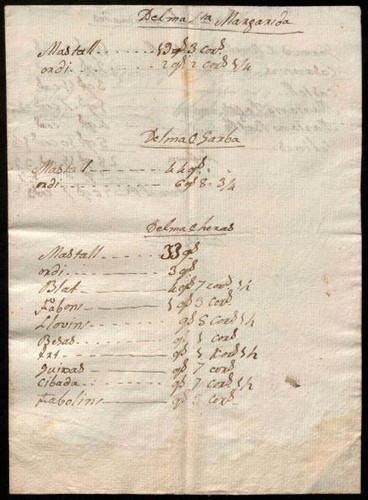 Delma Sta Margarida
Mastall 19 qs 3 cors
ordi 2 qs 2 cors 1/4
Delma Garba
Mastal 44 qs
ordi 6 qs 8 3/4
Delma
Mastall 33 qs
ordi 3 qs
Blat 4 qs 7 cors 1/2
Fabons 1 qs 3 cors
Llovins qs 8 cors 1/2
Besas qs 1 cors
qs 1 cors 1/2
guixas qs 7 cors
Cibada qs 7 cors 1/2
Fabolins qs 3 cors